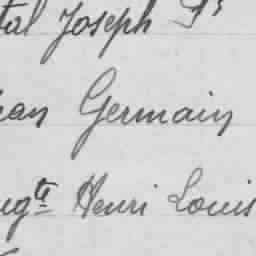 tal Joseph Ps
ean Germain
ugte Henri Louis